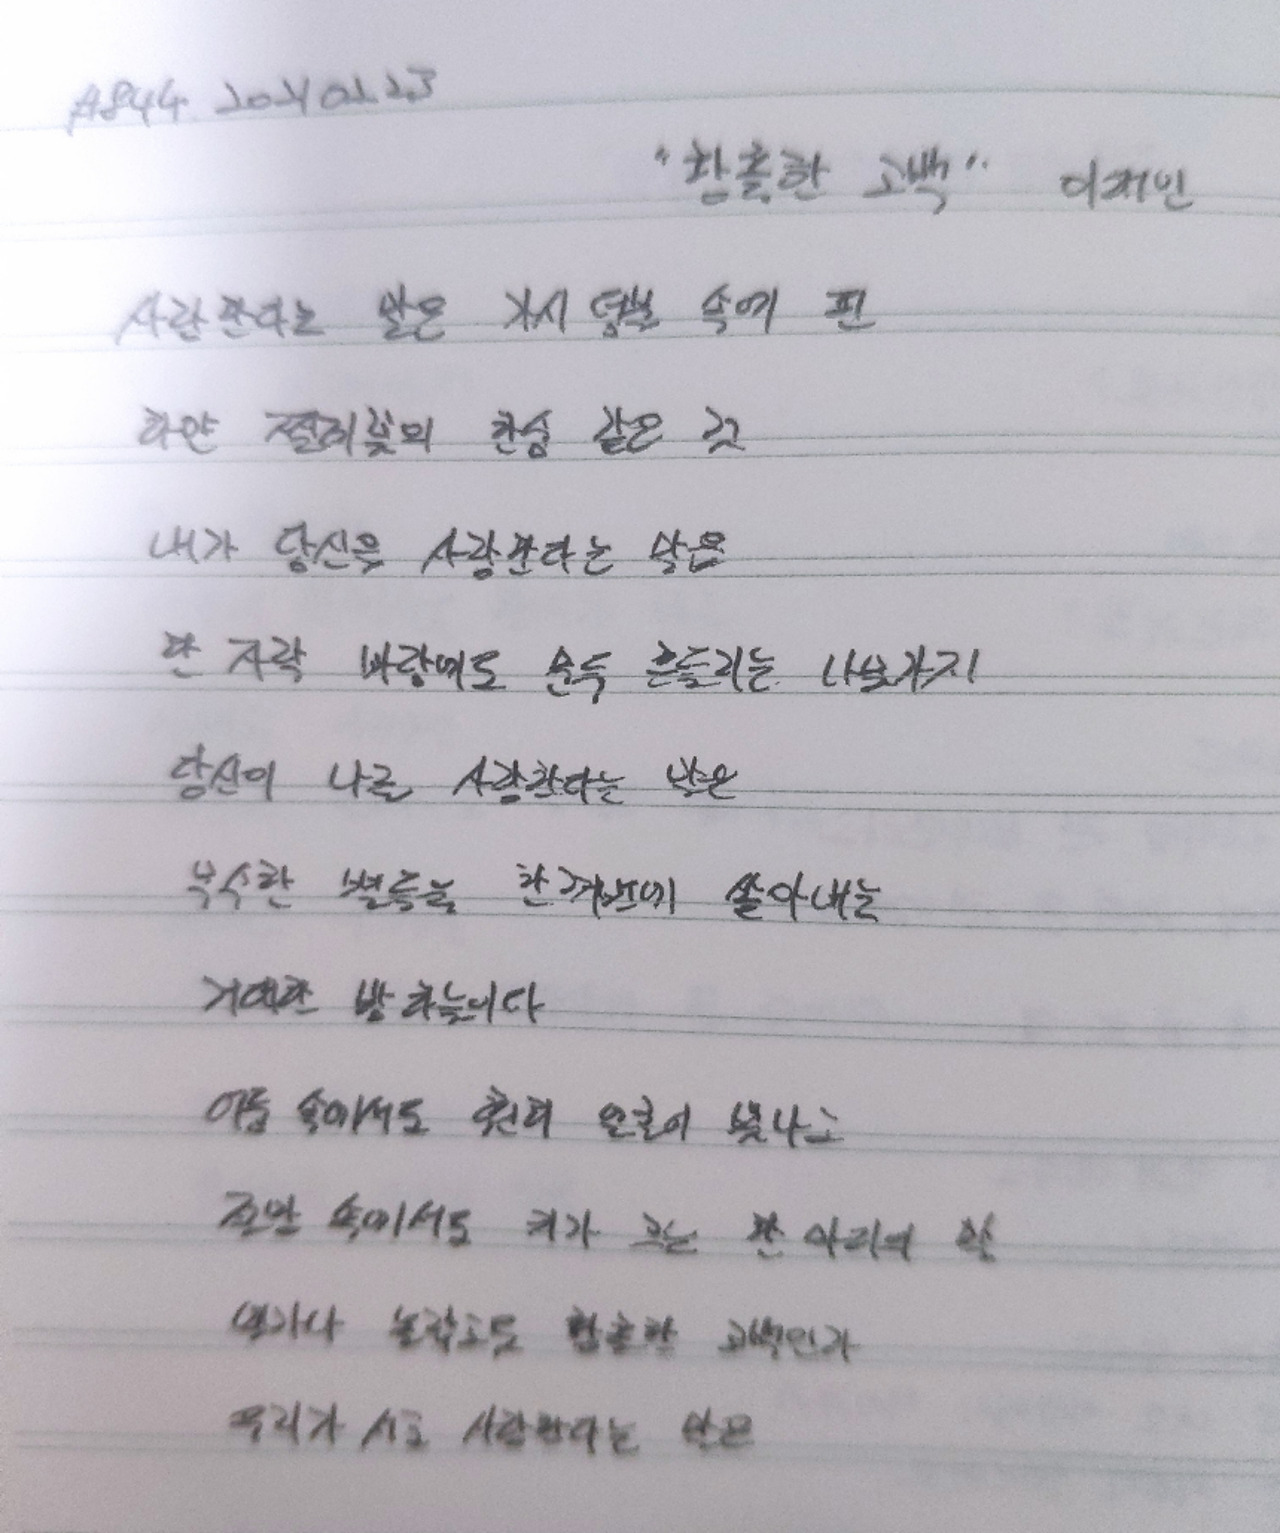 A844. 20210223
"황홀한 고백" 이해인
사랑한다는 말은 가시 덤불 속에 핀
하얀 찔레꽃의 한숨 같은 것
내가 당신을 사랑한다는 말은
한 자락 바람에도 문득 흔들리는 나뭇가지
당신이 나를 사랑한다는 말은
무수한 별들을 한꺼번에 쏟아내는
거대한 밤하늘이다
어둠 속에서도 훤히 얼굴이 빛나고
절망 속에서도 키가 크는 한 마디의 말
얼마나 놀랍고도 황홀한 고백인가
우리가 서로 사랑한다는 말은